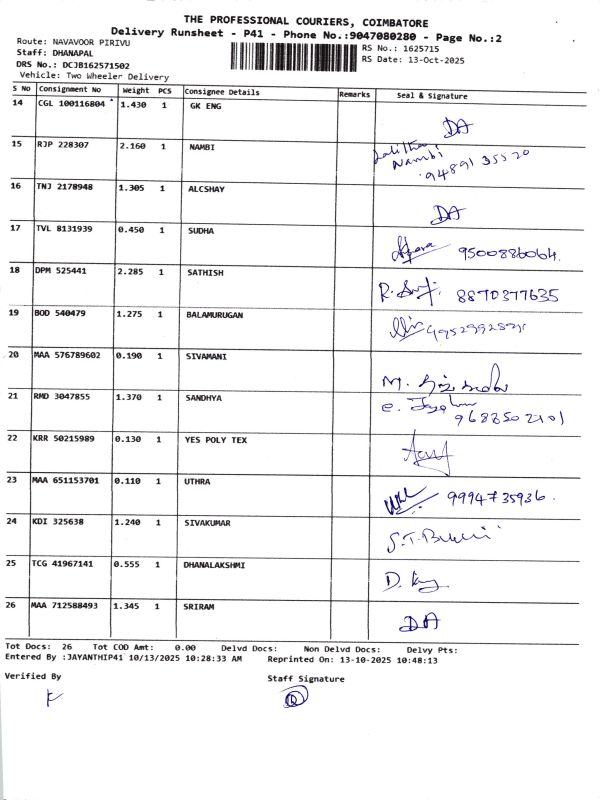 THE PROFESSIONAL COURIERS, COIMBATORE
Delivery Runsheet - P41 - Phone No.:9047080280 - Page No.:2
Route: NAVAVOOR PIRIVU
RS No.: 1625715
Staff: DHANAPAL
RS Date: 13-Oct-2025
DRS No.: DCJB162571502
Vehicle: Two Wheeler Delivery
S No Consignment No Weight PCS Consignee Details Remarks Seal & Signature
14 CGL 100116804 1.430 1 GK ENG
DA
15 RJP 228307 2.160 1 NAMBI
Lalitha
Nambi
94891 35520
16 TNJ 2178948 1.305 1 ALCSHAY
DA
17 TVL 8131939 0.450 1 SUDHA
9500886064.
18 DPM 525441 2.285 1 SATHISH
8870377635
19 BOD 540479 1.275 1 BALAMURUGAN
20 MAA 576789602 0.190 1 SIVAMANI
21 RMD 3047855 1.370 1 SANDHYA
22 KRR 50215989 0.130 1 YES POLY TEX
23 MAA 651153701 0.110 1 UTHRA
9994735936.
24 KDI 325638 1.240 1 SIVAKUMAR
25 TCG 41967141 0.555 1 DHANALAKSHMI
26 MAA 712588493 1.345 1 SRIRAM
DA
Tot Docs: 26 Tot COD Amt: 0.00 Delvd Docs: Non Delvd Docs: Delvy Pts:
Entered By :JAYANTHIP41 10/13/2025 10:28:33 AM Reprinted On: 13-10-2025 10:48:13
Verified By Staff Signature